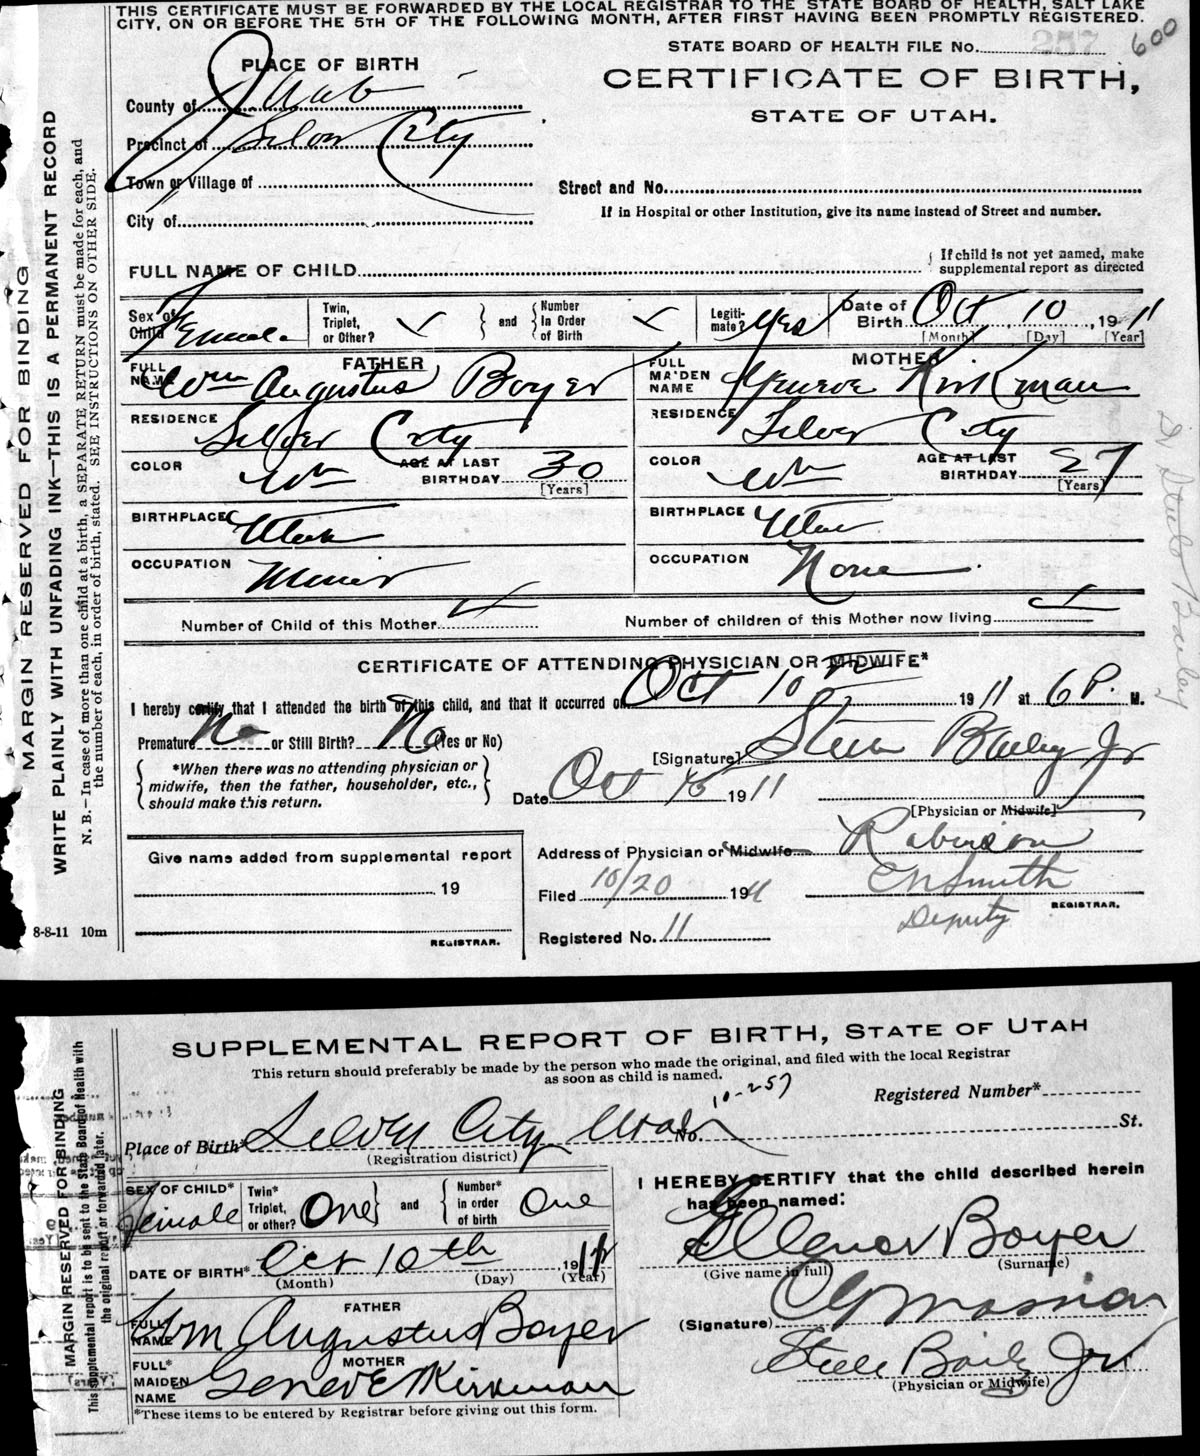 THIS CERTIFICATE MUST BE FORWARDED BY THE LOCAL REGISTRAR TO THE STATE BOARD OF HEALTH, SALT LAKE
CITY, ON OR BEFORE THE 5TH OF THE FOLLOWING MONTH, AFTER FIRST HAVING BEEN PROMPTLY REGISTERED.
STATE BOARD OF HEALTH FILE No. 257 600
PLACE OF BIRTH
CERTIFICATE OF BIRTH,
STATE OF UTAH.
County of Juab
Precinct of Silver City
Town or Village of
Street and No.
City of
If in Hospital or other Institution, give its name instead of Street and number.
FULL NAME OF CHILD
If child is not yet named, make supplemental report as directed
Sex of Child Female
Twin, Triplet, or Other? ✓ and Number In Order of Birth ✓
Legitimate? Yes
Date of Birth Oct 10, 1911
[Month] [Day] [Year]
FATHER
FULL NAME Wm Augustus Boyer
RESIDENCE Silver City
COLOR Wh AGE AT LAST BIRTHDAY 30
[Years]
BIRTHPLACE Utah
OCCUPATION Miner
MOTHER
FULL MAIDEN NAME Geneve Kirkman
RESIDENCE Silver City
COLOR Wh AGE AT LAST BIRTHDAY 27
[Years]
BIRTHPLACE Utah
OCCUPATION None
Number of Child of this Mother
Number of children of this Mother now living
CERTIFICATE OF ATTENDING PHYSICIAN OR MIDWIFE*
I hereby certify that I attended the birth of this child, and that it occurred on Oct 10th 1911 at 6 P. M.
Premature No or Still Birth? No (Yes or No)
*When there was no attending physician or
midwife, then the father, householder, etc.,
should make this return.
[Signature] Steele Bailey Jr
Date Oct 1911
[Physician or Midwife]
Give name added from supplemental report
19
REGISTRAR.
Address of Physician or Midwife Robinson
Filed 10/20 1911
C N Smith
REGISTRAR.
Deputy
Registered No. 11
8-8-11 10m
MARGIN RESERVED FOR BINDING
WRITE PLAINLY WITH UNFADING INK—THIS IS A PERMANENT RECORD
N. B.—In case of more than one child at a birth, a SEPARATE RETURN must be made for each, and
the number of each, in order of birth, stated. SEE INSTRUCTIONS ON OTHER SIDE.
Dr Steele Bailey
SUPPLEMENTAL REPORT OF BIRTH, STATE OF UTAH
This return should preferably be made by the person who made the original, and filed with the local Registrar
as soon as child is named.
10-257
Registered Number*
Place of Birth* Silver City Utah No. St.
(Registration district)
SEX OF CHILD* Female
Twin* Triplet, or other? One and Number* in order of birth One
DATE OF BIRTH* Oct 10th 1911
(Month) (Day) (Year)
FATHER
FULL NAME Wm Augustus Boyer
MOTHER
FULL* MAIDEN NAME Geneve Kirkman
*These items to be entered by Registrar before giving out this form.
I HEREBY CERTIFY that the child described herein
has been named:
Ellenor Boyer
(Give name in full) (Surname)
(Signature)
Steele Baily Jr
(Physician or Midwife)
MARGIN RESERVED FOR BINDING
This supplemental report is to be sent to the State Board of Health with
the original report or forwarded later.